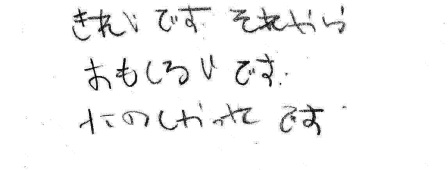 きれいです。それから
おもしろいです。
たのしかったです。